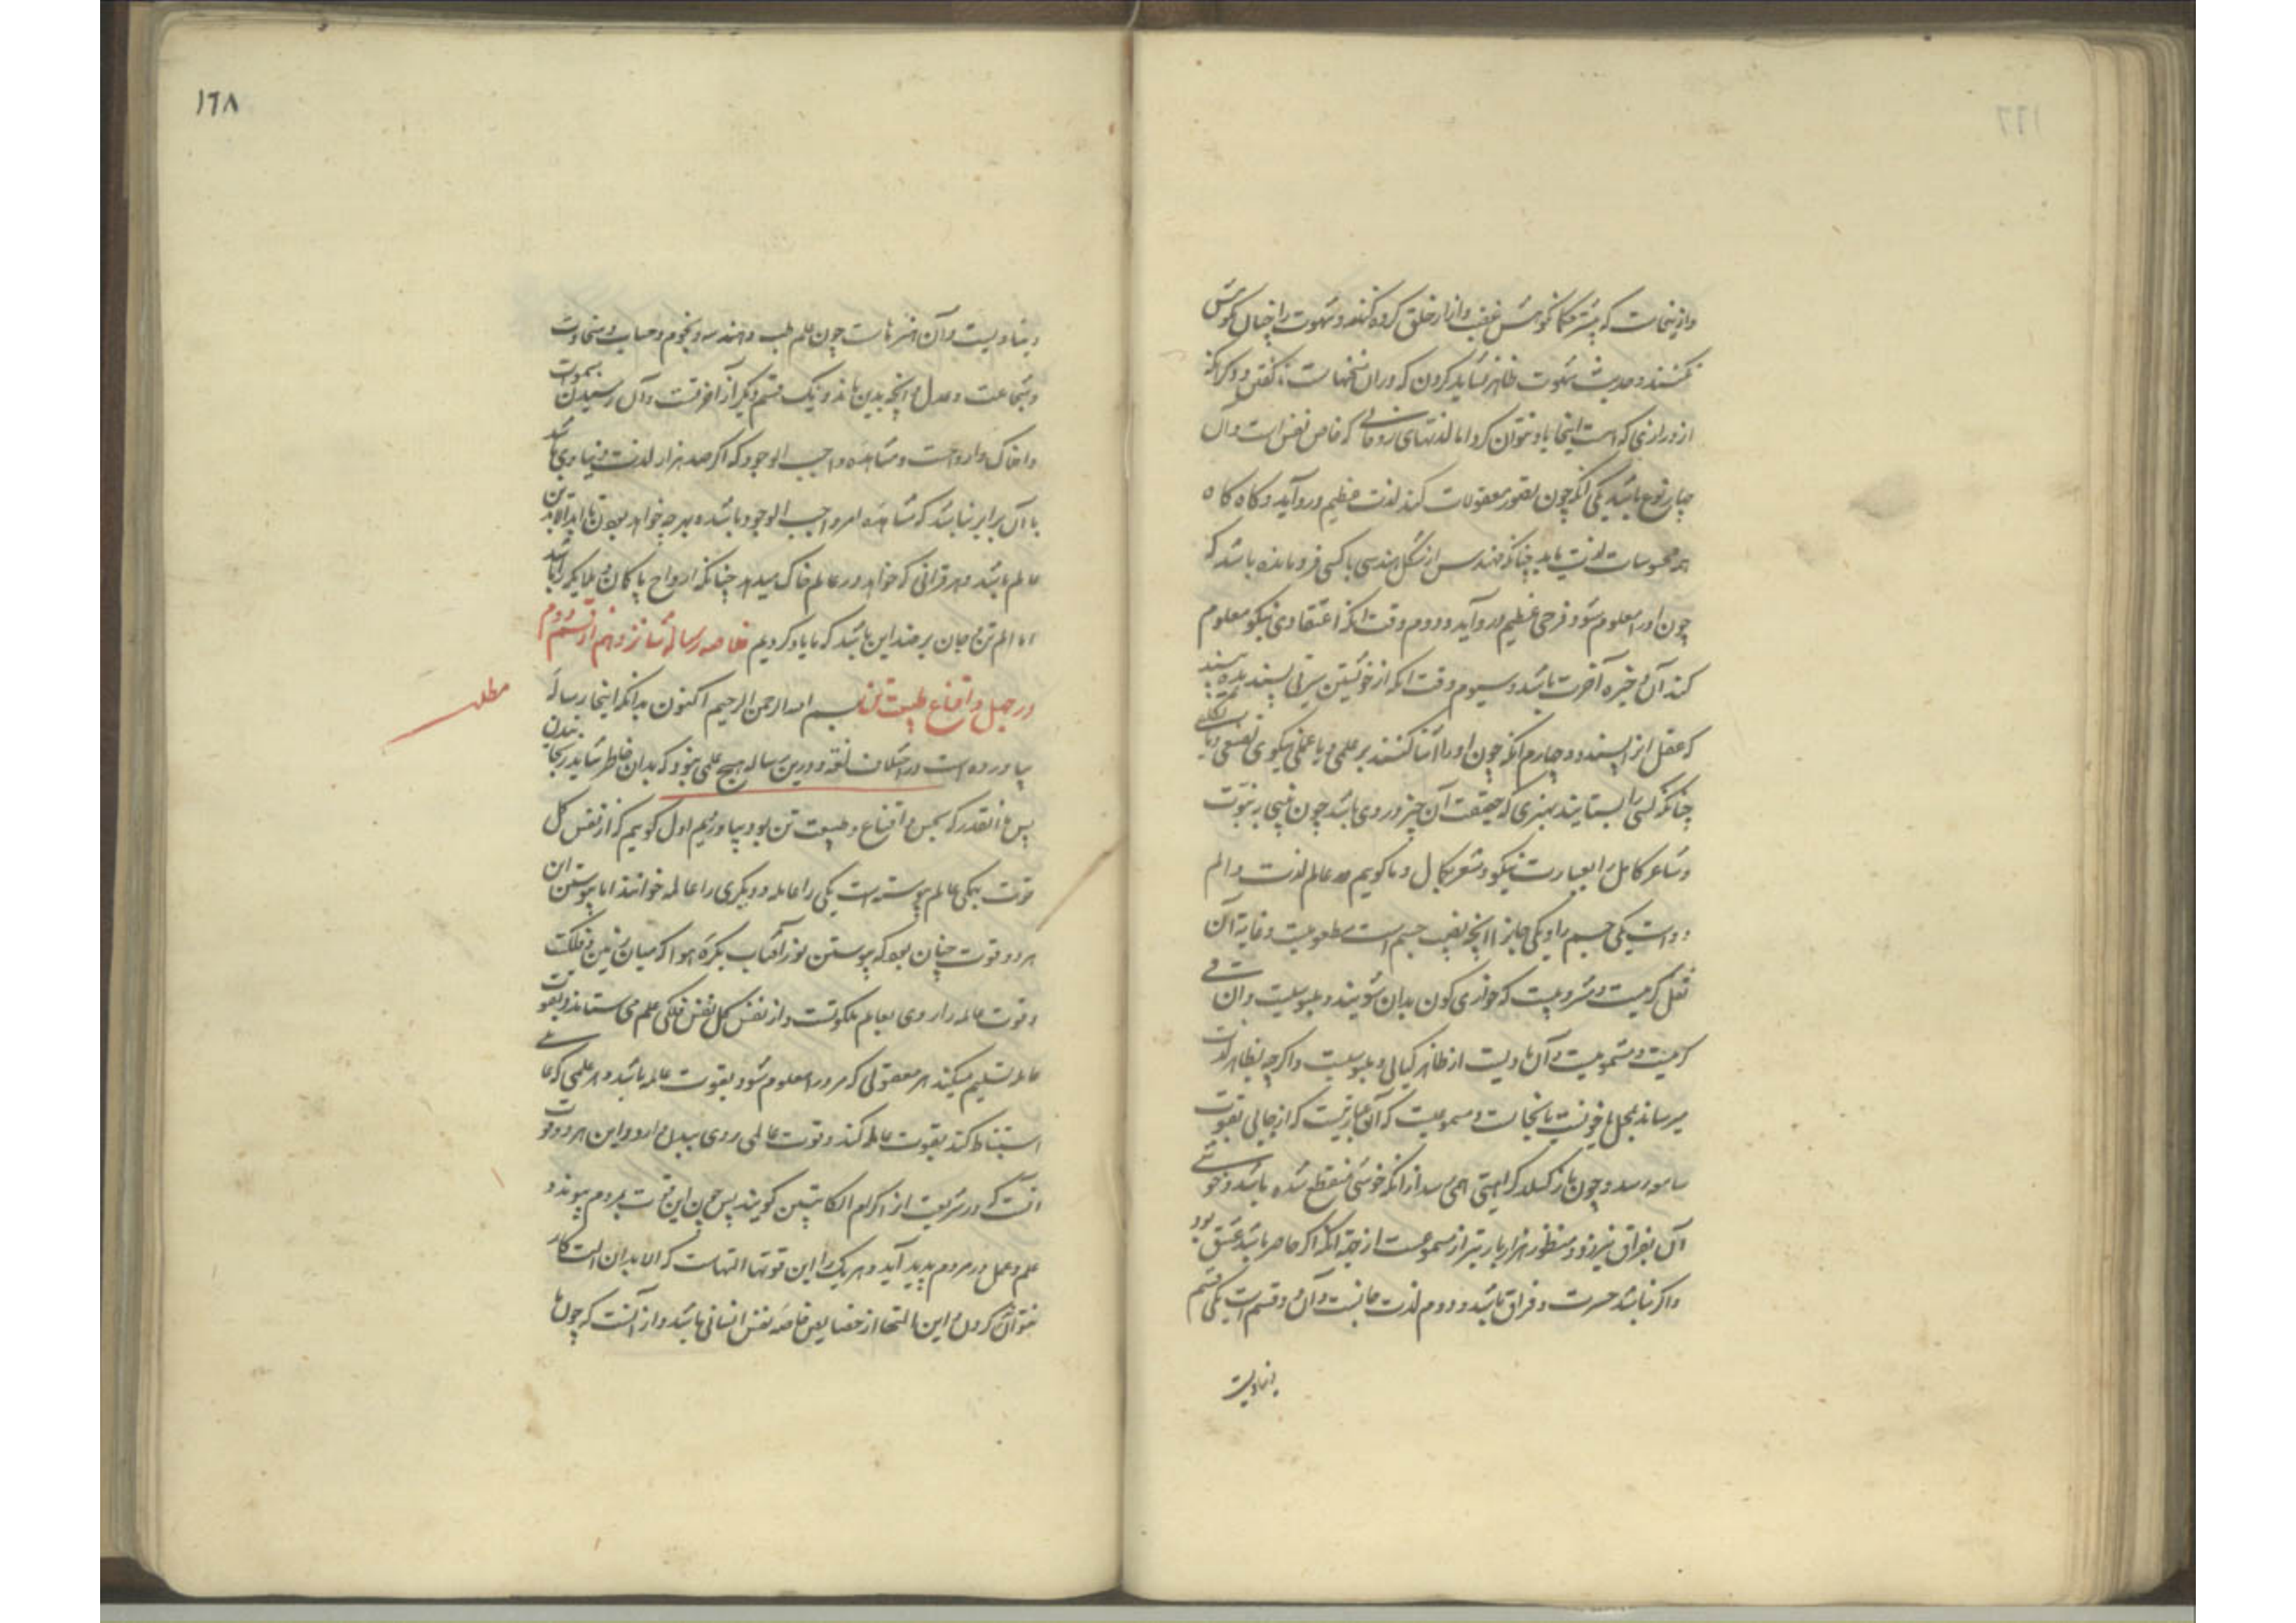 وازینجاست که بیشتر حکما نکوهش غضب و آزار خلق کرده‌اند و شهوت را چنان نکوهش
نکنند و حدیث شهوت ظاهر نشاید کردن که در آن سخنهاست
از درازنی که است اینجا یاد نتوان کرد اما لذتهای روحانی که خاص نفس است و آن
چهار نوع باشد یکی آنکه چون تصور معقولات کند لذت عظیم درو آید و گاه گاه
هم محسوسات لذت یابد چنانکه مهندس از شکل هندسی با کسی فرومانده باشد که
چون او را معلوم شود فرحی عظیم درو آید و دوم وقت آنکه اعتقادی نیکو معلوم
کند آن ذخیره آخرت باشد و سیوم وقت آنکه از خویشتن سیرتی پسندیده بیند
که عقل انرا پسندد و چهارم آنکه چون او را ثنا کنند بر علمی و یا عملی نیکوی
چنانکه کسی را بستایند بهنری که حقیقت آن چیز در وی باشد چون نبی به نبوت
و شاعر کامل را بعبارت نیکو و شعر بکمال و ما گوییم در عالم لذت و الم
دو است یکی جسم را و یکی جان را آنچه نصیب جسم است مطعومیت و غایة آن
ثفل کریهست و مشروبیت که خواری کون بدان شویند و ملبوسیت و آن
کرمیست و مشمومیت و آن بادیست از ظاهر گیاهی و ملبوسیت و اگرچه بظاهر لذت
میرساند بمحل عفونت یا نجاست و مسموعیت که آن عبارتیست که از جایی بقوت
سامعه رسد و چون باز گسلد کراهیتی همی رسد از آنکه خوشی منقطع شده باشد و خوشی
آن بفراق نیرزد و منظور هزار بار بتر از مسموعست از جهة آنکه اگر حاضر باشد عشق بود
و اگر نباشد حسرت و فراق باشد و دوم لذت جانست و آن دو قسم است یکی قسم
دنیاویست
١٦٨
دنیاویست و آن هنرهاست چون علم طب و هندسه و نجوم و حساب و سخاوت
و شجاعت و عدل و آنچه بدین ماند و یک قسم دیگر از آخرتست و آن رسیدن بموت
و املاک و ارواحست و مشاهده واجب الوجود که اگر صد هزار لذت دنیاوی باشد
با آن برابر نباشد که مشاهده امر واجب الوجود باشد و بهرچه خواهد بودن تا ابد الابدین
عالم باشد و هر قرانی که خواهد در عالم خاک میدهد چنانکه ارواح پاکان و ملایکه را باشد
اما الم تن و جان بر ضد این باشد که ما یاد کردیم خلاصه رساله شانزدهم از قسم دوم
در جبل و اقناع طبیعت تن بسم الله الرحمن الرحیم اکنون بدانکه اینجا رسالهٔ
مطلب
بیاورده است در اختلاف لغة و درین رساله هیچ علمی نبود که بدان خاطر شاید رنجانیدن
پس آنقدر که بجنس و اقناع و طبیعت تن بود بیاوردیم اول گوییم که از نفس کل
قوت بیکی عالم پیوسته است یکی را عامله و دیگری را عالمه خوانند اما پیوستن آن
هر دو قوت چنان بود که پیوستن نور آفتاب بکره هوا که میان زمین و فلکست
و قوت عالمه را روی بعالم ملکوتست و از نفس کل بنفس فلکی علم می ستاند و بقوت
عامله تسلیم میکند هر معقولی که مر ورا معلوم شود بقوت عالمه باشد و هر علمی که
استنباط کند بقوت عامله کند و قوت عاملی روی ببدن دارد و این هر دو قوت
آنست که در شریعت از آن کرام الکاتبین گویند پس چون این قوت بمردم پیوندد
علم و عمل در مردم پدید آید و هر یک را این قوتها آلتهاست که الا بدان آلت کار
نتوان کردن و این آلتها از خصایص خاصه نفس انسانی باشد و از آنست که چون ما